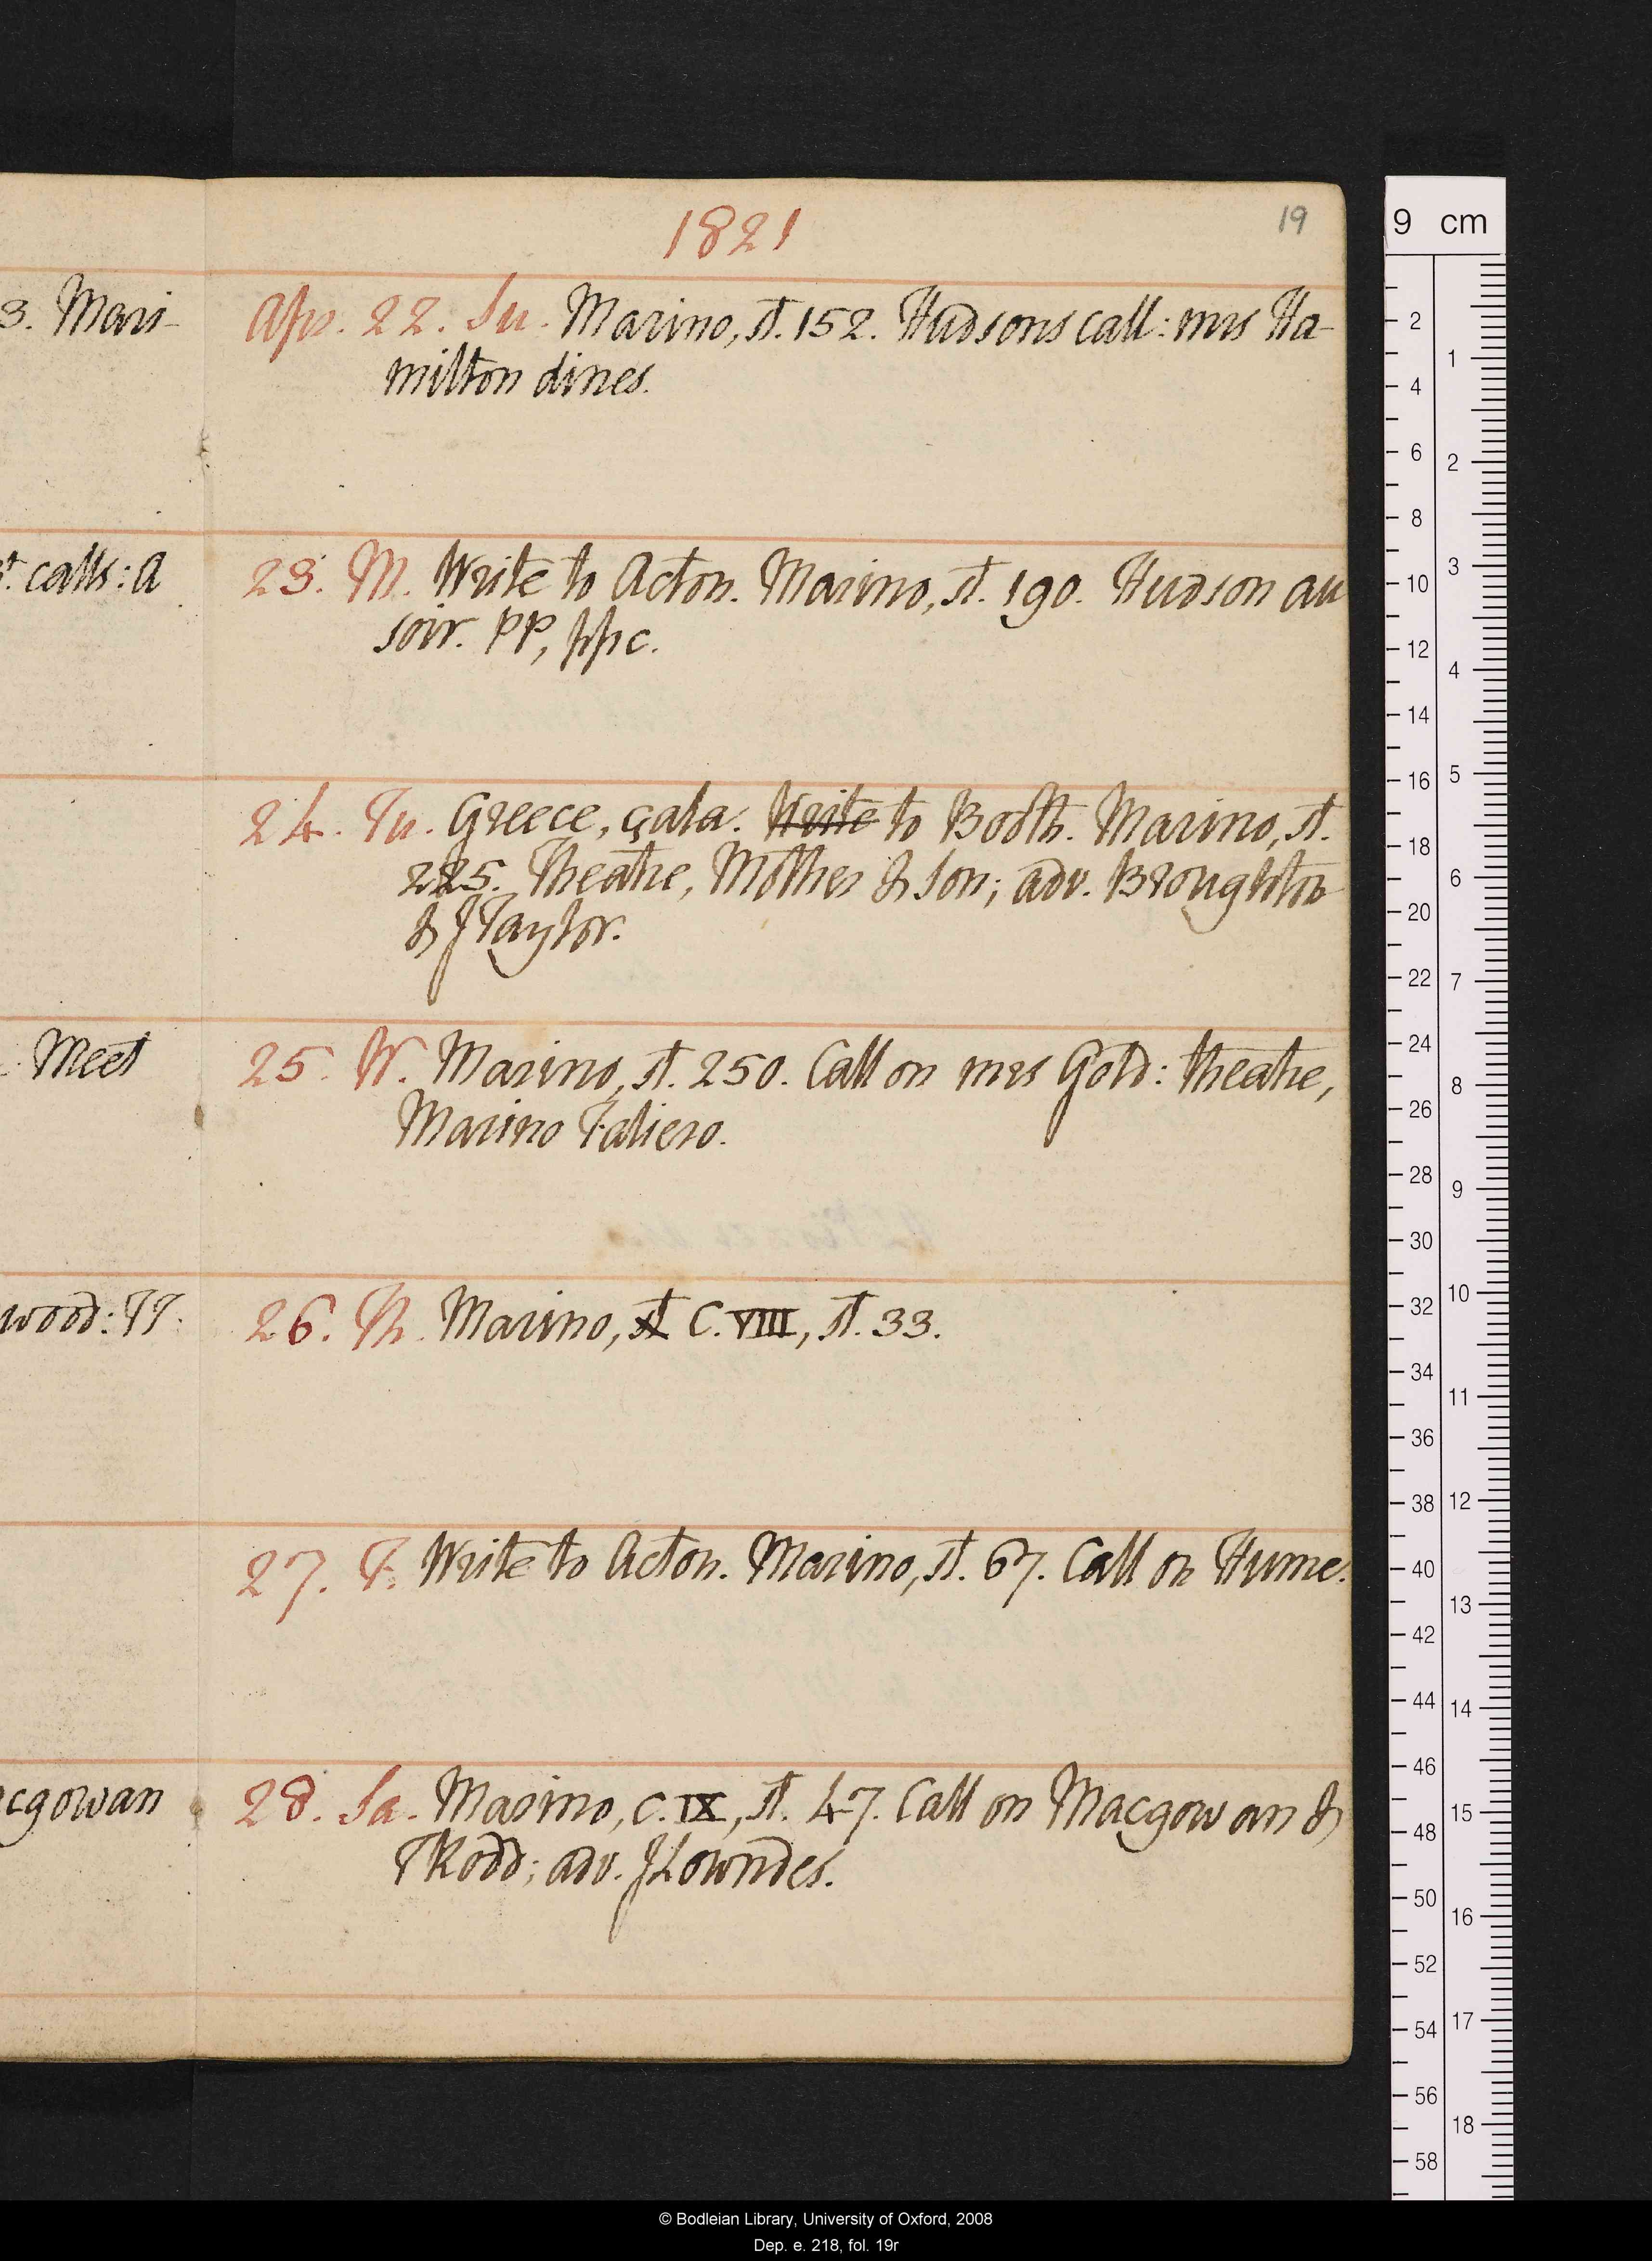 1821
19
3. Mari-
Apr. 22. Su. Marino, st. 152. Hudsons call: mrs Ha-
milton dines.
calls: A
23. M. Write to Acton. Marino, st. 190. Hudson au
soir. PP, ppc.
24. Tu. Greece, gala. Write to Booth. Marino, st.
225. Theatre, Mother & Son; adv. Broughton
& JTaylor.
Meet
25. W. Marino, st. 250. Call on mrs Gold: theatre,
Marino Faliero.
wood: TT.
26. Th. Marino, st C. VIII, st. 33.
27. F. Write to Acton. Marino, st. 67. Call on Hume.
cgowan
28. Sa. Marino, C. IX, st. 47. Call on Macgowan &
TRodd; adv. JLowndes.
9 cm
2
4
6
8
10
12
14
16
18
20
22
24
26
28
30
32
34
36
38
40
42
44
46
48
50
52
54
56
58
1
2
3
4
5
6
7
8
9
10
11
12
13
14
15
16
17
18
© Bodleian Library, University of Oxford, 2008
Dep. e. 218, fol. 19r